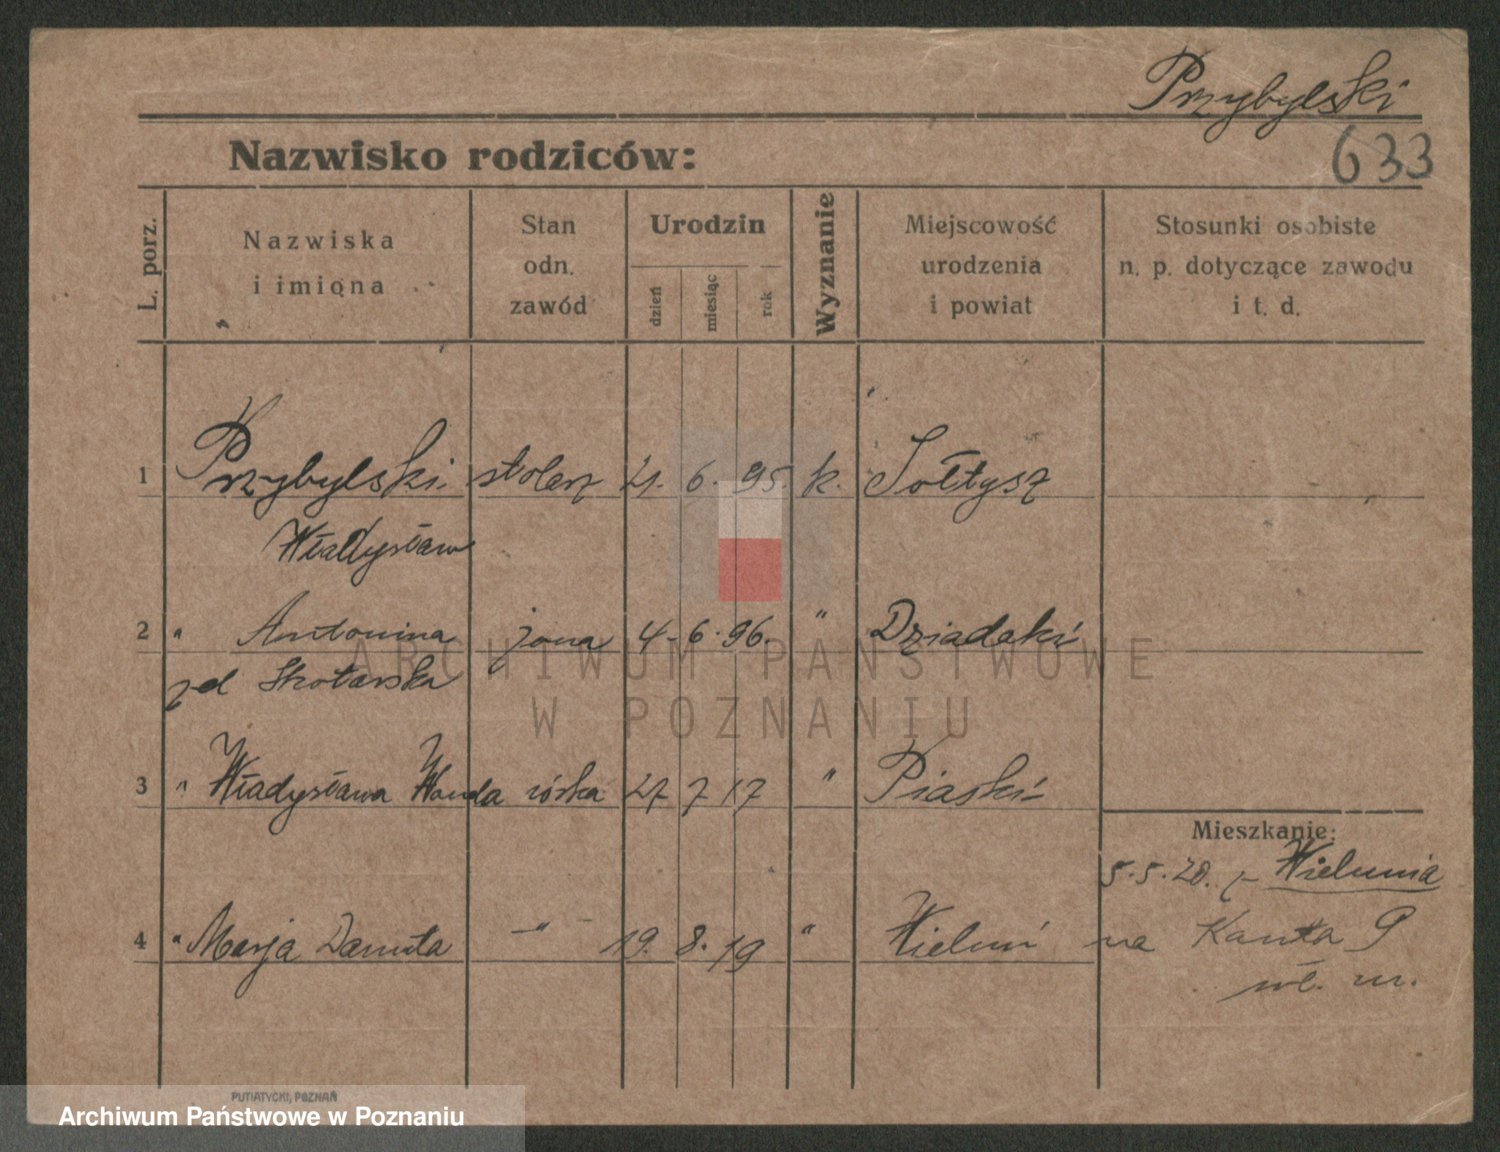 Przybylski
633
Nazwisko rodziców:
L. porz.
Nazwiska
i imiona
Stan
odn.
zawód
Urodzin
dzień
miesiąc
rok
Wyznanie
Miejscowość
urodzenia
i powiat
Stosunki osobiste
n. p. dotyczące zawodu
i t. d.
1 Przybylski stolarz 21. 6. 95. k. Sołtysz
Władysław
2 " Antonina żona 4. 6. 96. " Dziadaki
zd Skotarska
3 " Władysława Wanda córka 27 7 17 " Piaski
Mieszkanie:
5.5.20. z Wielunia
4 " Marja Danuta -"- 19. 8. 19 " Wieluń na Kanta 9
wł. m.
ARCHIWUM PAŃSTWOWE
W POZNANIU
PUTIATYCKI, POZNAŃ
Archiwum Państwowe w Poznaniu